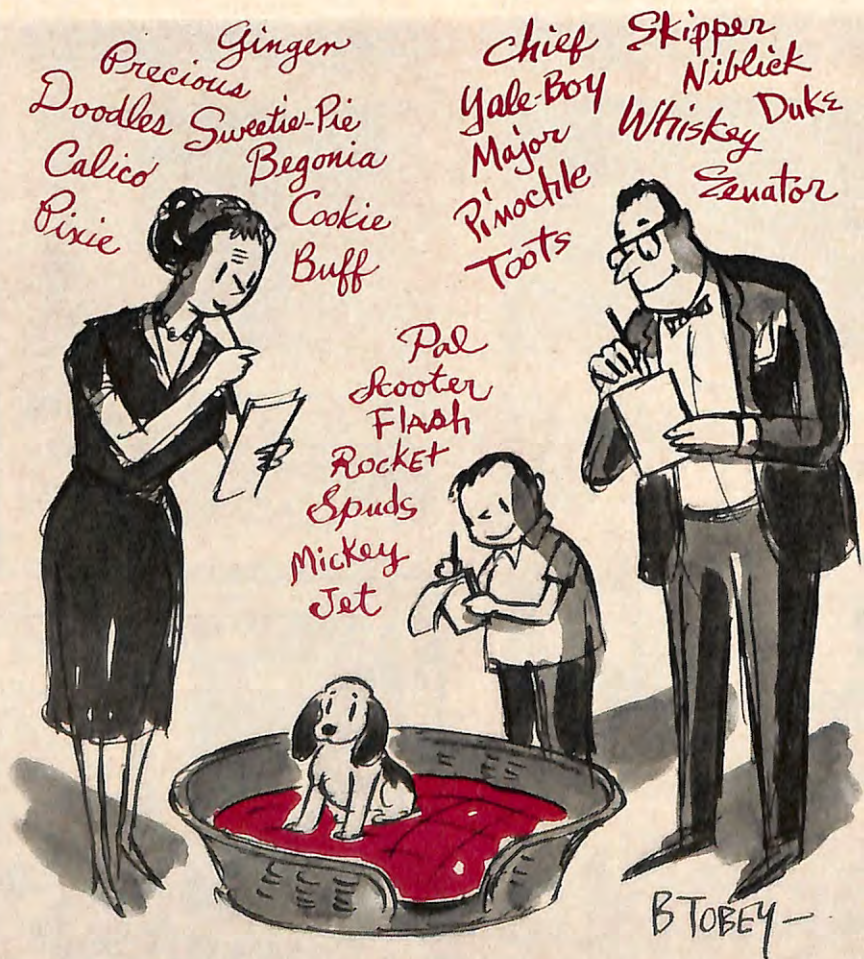 Ginger
Precious
Doodles
Sweetie-Pie
Calico
Begonia
Pixie
Cookie
Buff
Chief
Skipper
Yale-Boy
Niblick
Major
Whiskey
Duke
Pinochle
Senator
Toots
Pal
Scooter
FLASh
RockEt
Spuds
Mickey
Jet
B TOBEY—